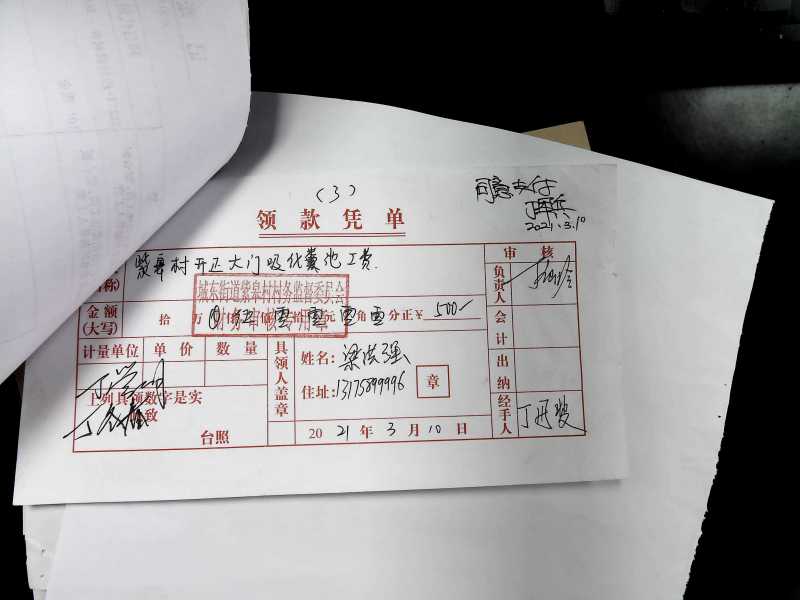 (3)
同意支付
2021.3.10
领款凭单
称)
紫皋村开正大门吸化粪池工费.
审核
负责人
城东街道紫皋村村务监督委员会
财务审核专用章
金额
(大写)
拾万仟伍佰零拾零元零角零分正¥500-
会计
计量单位 单价 数量
具领人盖章
姓名:梁法强
住址:13175899996
章
出纳
上列具领数字是实
致
台照
2021年3月10日
经手人